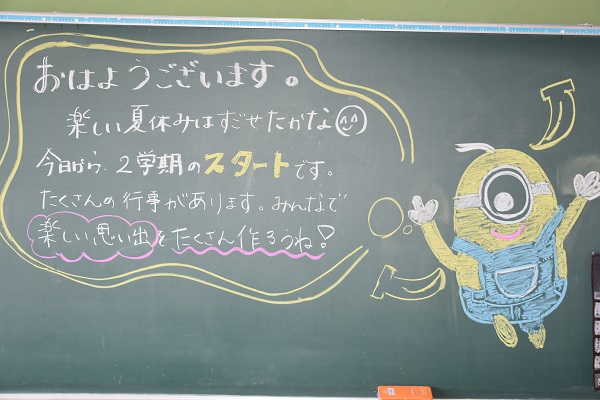 おはようございます。
楽しい夏休みはすごせたかな
今日から、2学期のスタートです。
たくさんの行事があります。みんなで
楽しい思い出をたくさん作ろうね!